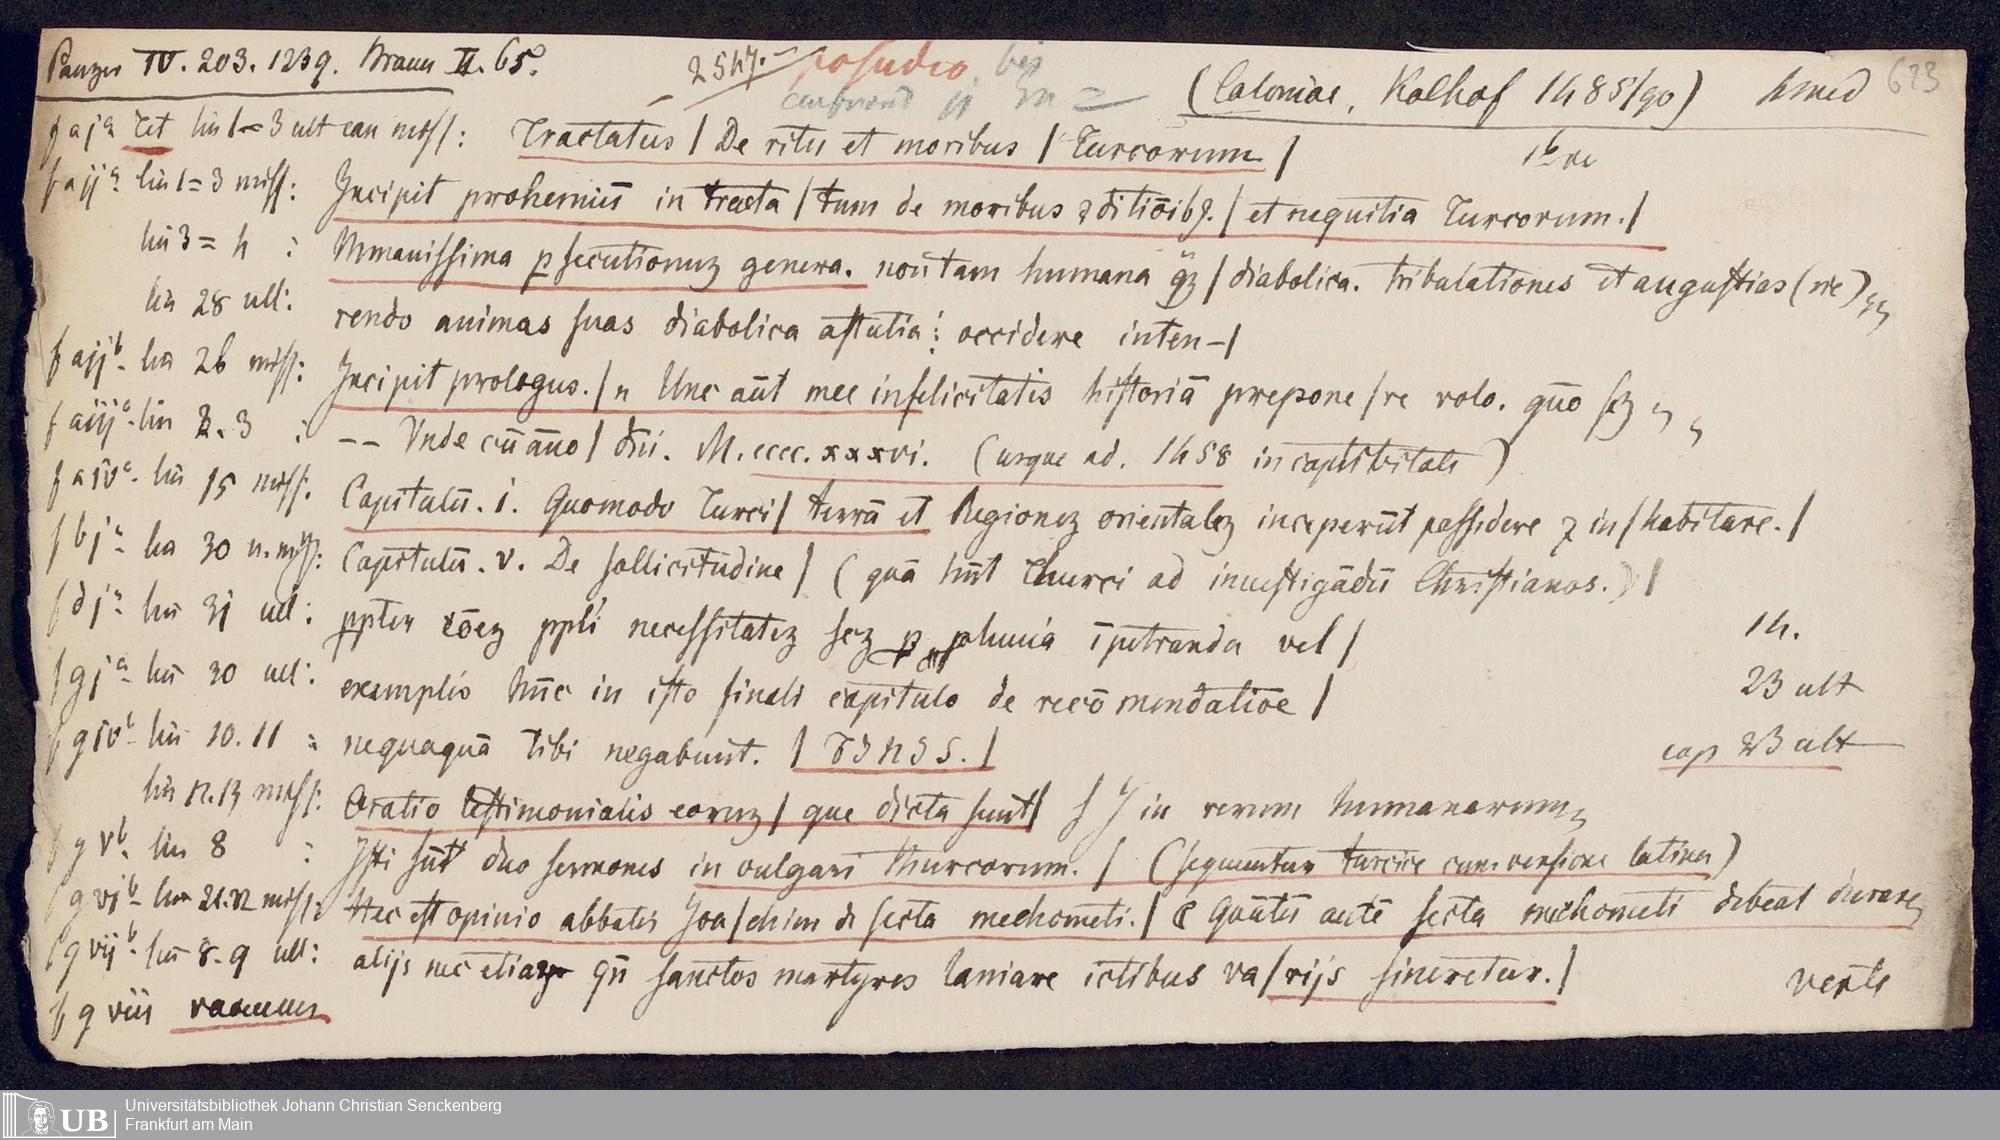 Panzer IV. 203. 1239. Braun II. 65.
2547.
(Coloniae, Kolhof 1485/90) hmed 623
f aja Tit lin 1=3 ult cau miss: Tractatus / De ritu et moribus / Turcorum / 1b va
f aija lin 1=3 miss: Incipit prohemiū in tracta / tum de moribus ꝯditiōibꝫ. / et nequitia Turcorum. /
lin 3 = 4 : Mmanissima ꝑsecutionuꝫ genera. non tam humana qꝫ / diabolica. tribulationes et angustias (ne)
lin 28 ult: rendo animas suas diabolica astutia: occidere inten- /
f aijb lin 26 miss: Incipit prologus. / n Unc aūt mee infelicitatis historiā prepone / re volo. quō scꝫ
f aiija lin 2. 3 : -- Vnde cū āno / dn̄i. M.cccc.xxxvi. (usque ad. 1458 in captivitate)
f aiva lin 15 miss. Capitulū. i. Quomodo Turci / terrā et Regioneꝫ orientaleꝫ inceperūt possidere ꝛ in / habitare. /
f bja lin 30 u. miss: Capitulū. v. De sollicitudine / (quā hn̄t Thurci ad inuestigādū Christianos.) /
f dja lin 31 ult: ꝓpter cōeꝫ ppli necessitateꝫ scꝫ ꝓ pluuia īpetranda vel / 14.
f gja lin 30 ult: exemplis hūc in isto finali capitulo de recōmendatiōe / 23 ult
f givb lin 10. 11 : nequaquā tibi negabunt. / FINIS. / cap 23 ult
lin 12. 13 miss: Oratio testimonialis eoruꝫ / que dicta sunt / in rerum humanarum
f gvb. lin 8 : Isti sūt duo sermones in vulgari thurcorum. / (sequuntur turcice cum versione latina)
f gvjb lin 21. 22 miss: Hec est opinio abbatis Joa / chim d secta mechometi. / C Quātū autē secta mechometi debeat durare
f gvijb. lin 8-9 ult: alijs nec etiam qn̄ sanctos martyres laniare ictibus va / rijs sineretur. /
f gviii vacuum verte
UB Universitätsbibliothek Johann Christian Senckenberg
Frankfurt am Main